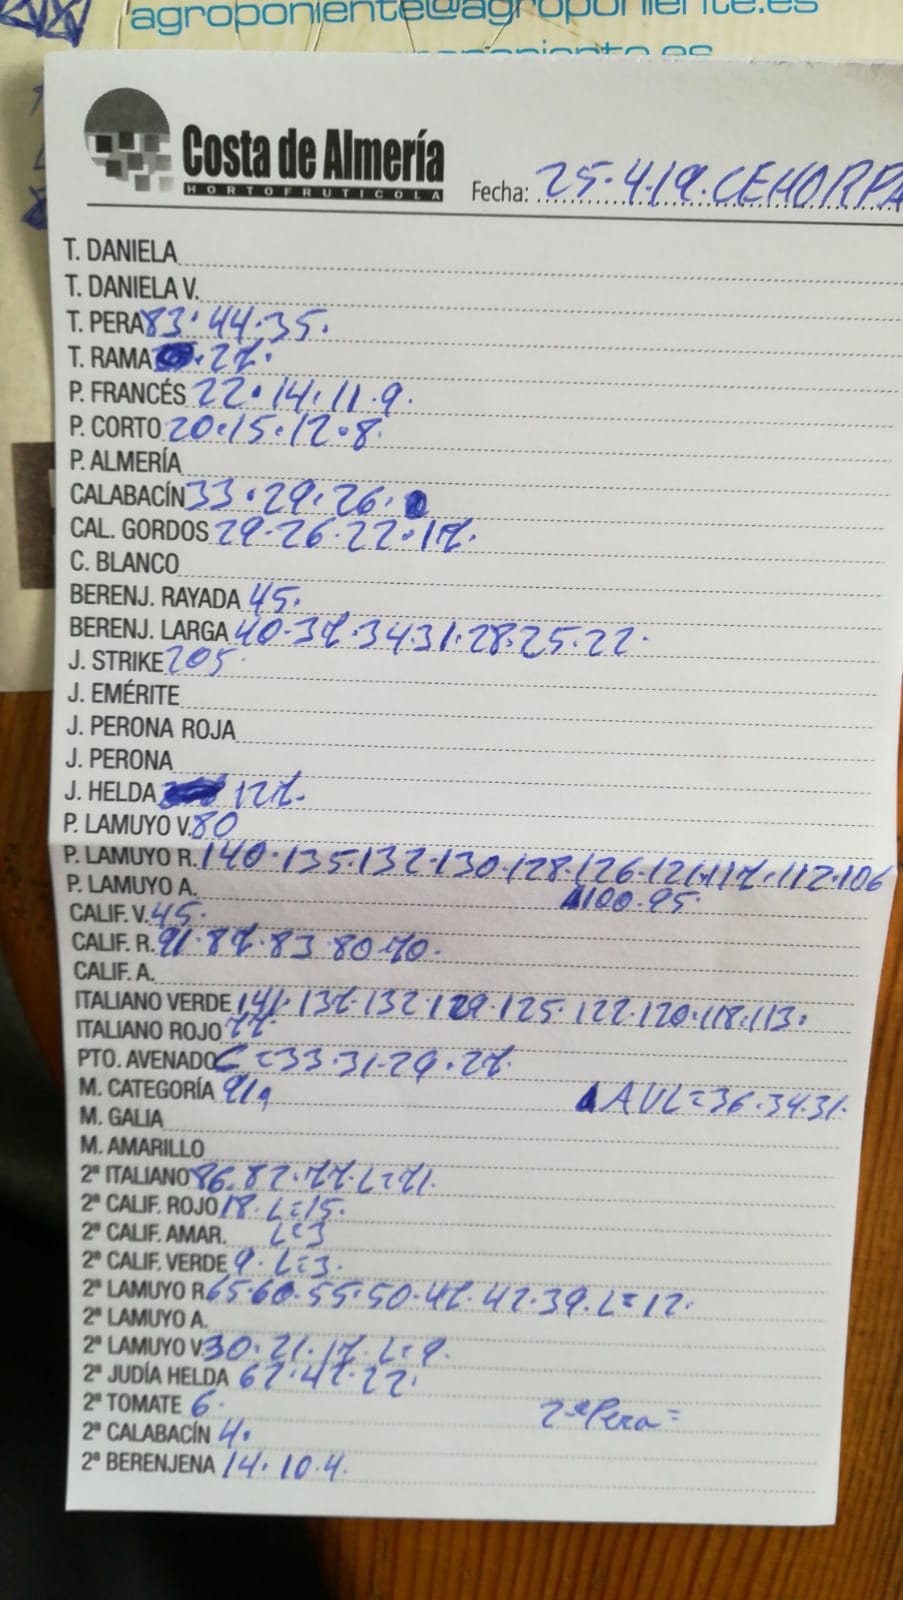 agroponiente@agroponiente.es
Costa de Almería
HORTOFRUTICOLA
Fecha: 25.4.19. CEHORPA
T. DANIELA
T. DANIELA V.
T. PERA 83. 44.35.
T. RAMA .27.
P. FRANCÉS 22.14.11.9.
P. CORTO 20.15.12.8.
P. ALMERÍA
CALABACÍN 33.29.26.
CAL. GORDOS 29.26.22.17.
C. BLANCO
BERENJ. RAYADA 45.
BERENJ. LARGA 40.37.34.31.28.25.22.
J. STRIKE 205.
J. EMÉRITE
J. PERONA ROJA
J. PERONA
J. HELDA 127.
P. LAMUYO V. 80
P. LAMUYO R. 140.135.132.130.128.126.121.117.112.106
P. LAMUYO A. 100.95.
CALIF. V. 45.
CALIF. R. 91.87.83.80.70.
CALIF. A.
ITALIANO VERDE 141.137.132.129.125.122.120.118.113.
ITALIANO ROJO 77.
PTO. AVENADO C=33.31.29.27.
M. CATEGORÍA 91, AVL=36.34.31.
M. GALIA
M. AMARILLO
2ª ITALIANO 86.82.77.L=71.
2ª CALIF. ROJO 18. L=15.
2ª CALIF. AMAR. L=3
2ª CALIF. VERDE 9. L=3.
2ª LAMUYO R 65.60.55.50.47.42.39.L=12.
2ª LAMUYO A.
2ª LAMUYO V. 30.21.17.L=9.
2ª JUDÍA HELDA 67.47.22.
2ª TOMATE 6. 2ª Pera=
2ª CALABACÍN 4.
2ª BERENJENA 14.10.4.